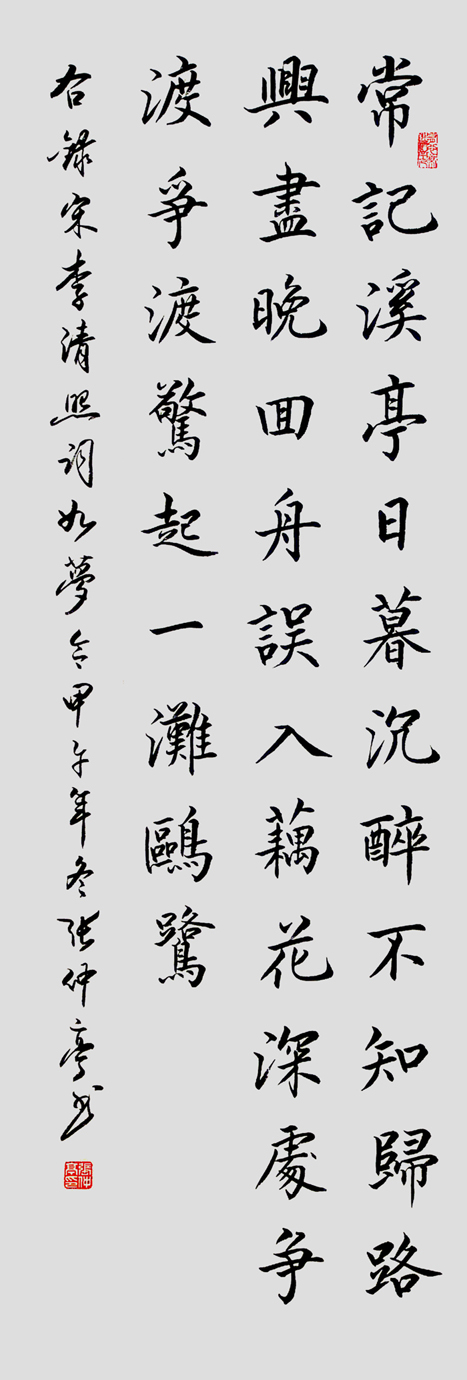 常記溪亭日暮沉醉不知歸路
興盡晚回舟誤入藕花深處爭
渡爭渡驚起一灘鷗鷺
右錄宋李清照詞如夢令甲午年冬張仲亭書
張仲亭印